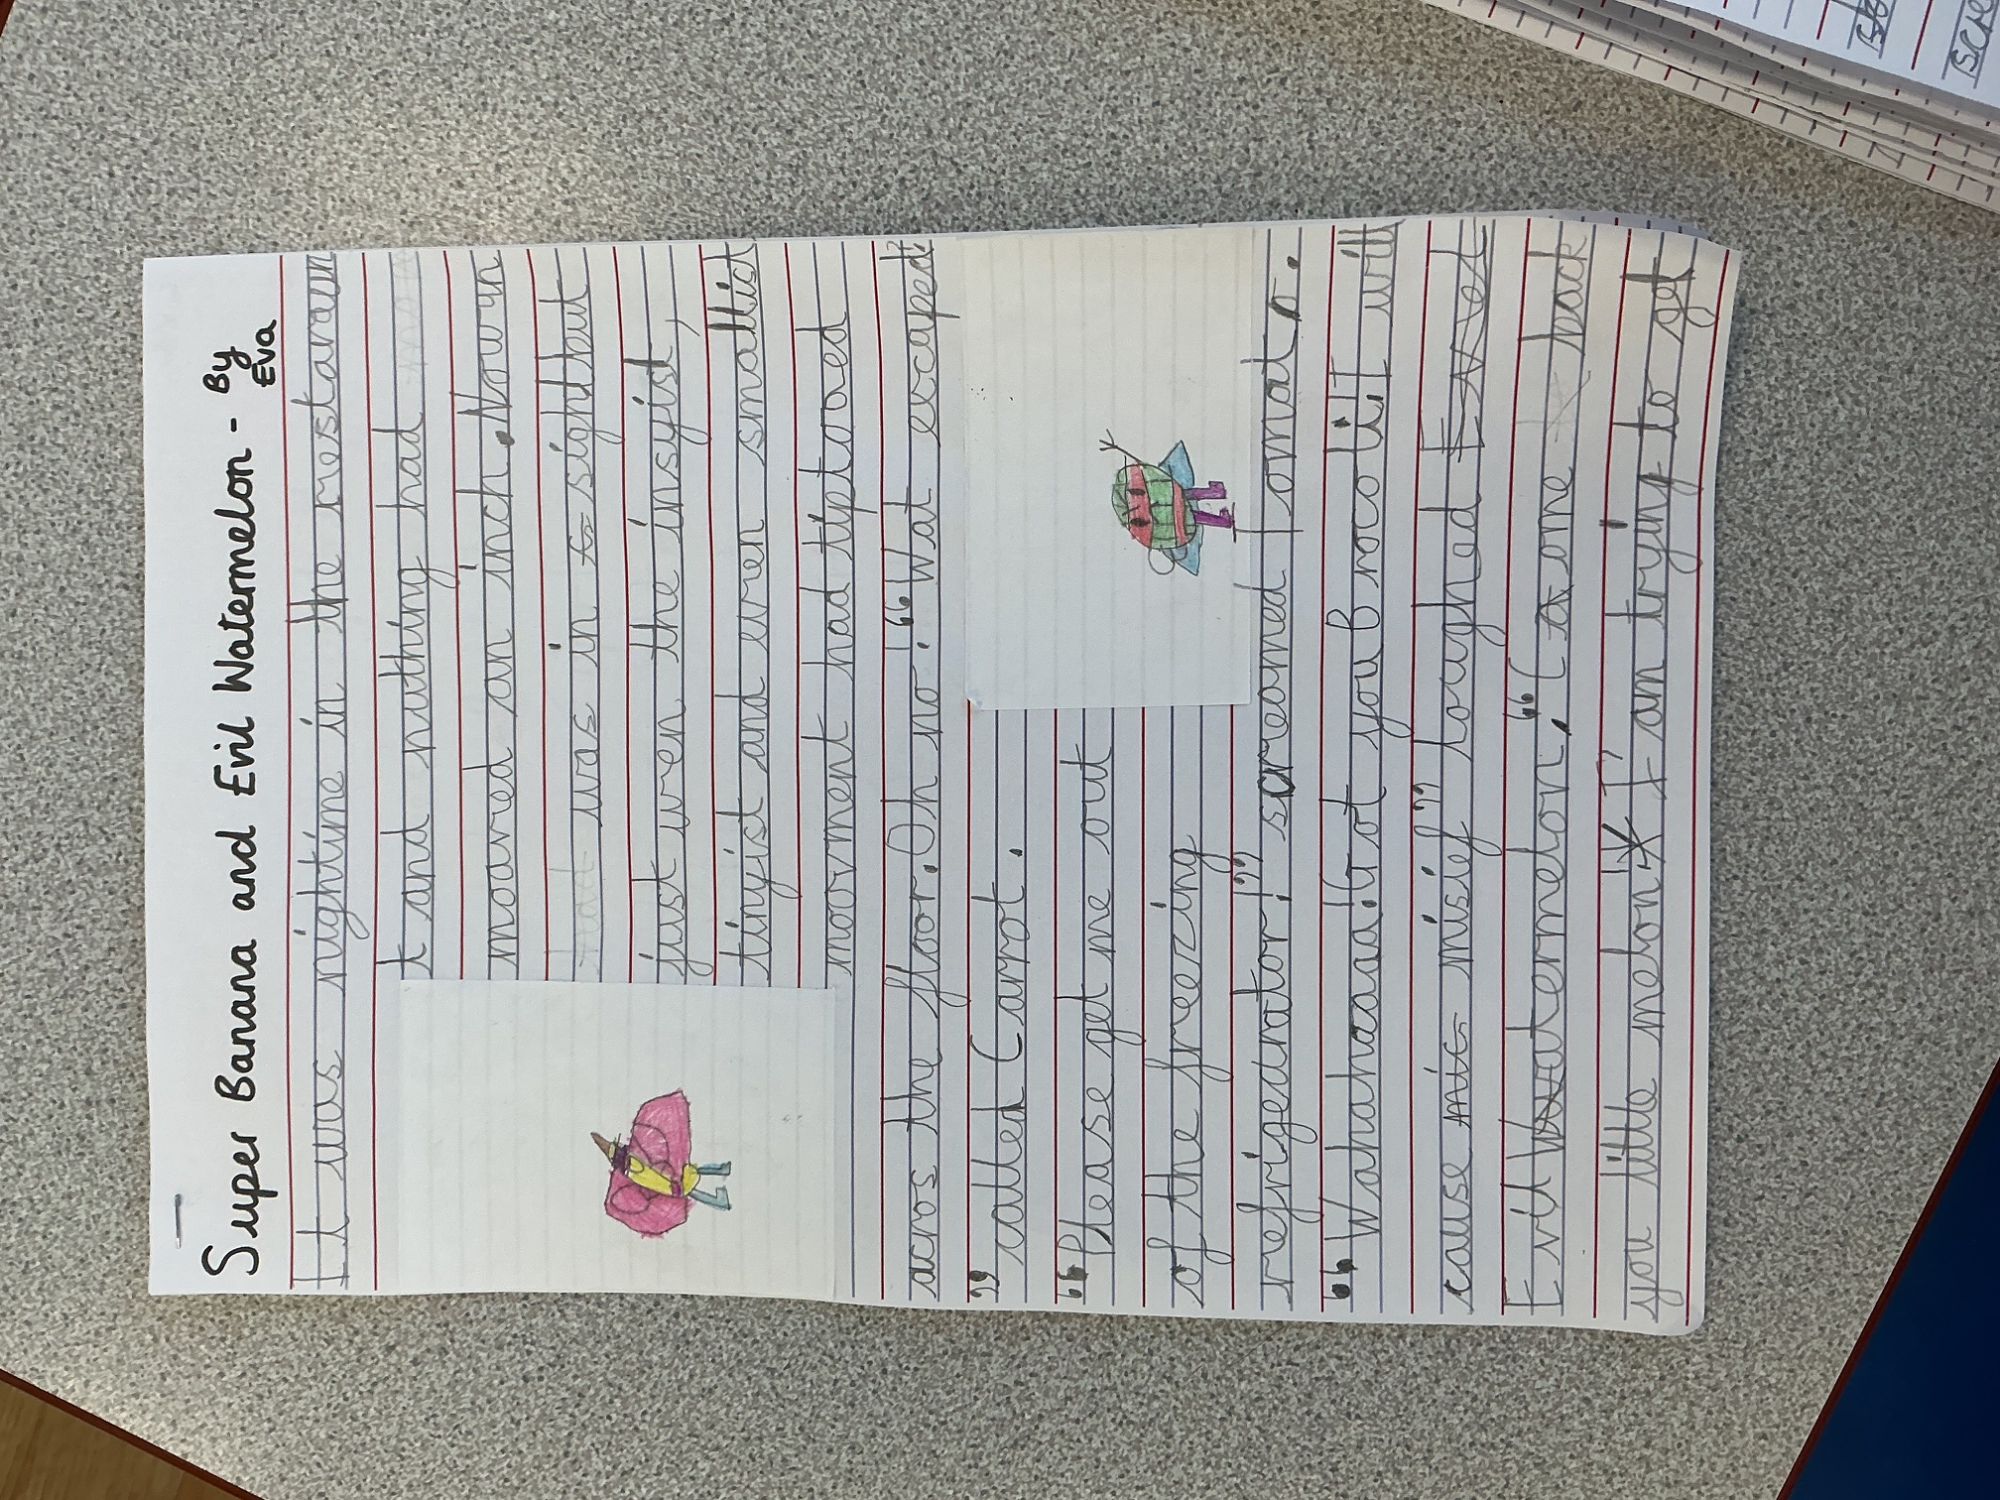 Super Banana and Evil Watermelon - By
Eva
It was nightime in the restaraun
t and nuthing had
moaved an inch. Nowun
was in sight but
just wen the insyist,
tinyist and even smallist
moovment had tiptoaed
across the floor. Oh no. "Wat escaped?
" called Carrot.
"Please get me out
of the freezing
refrigedrator!" screamed Tomato.
"Wahahaaa! Got you Brocolli! I will
cause misief" loughed
Evil Watermelon. "Come back
you little melon * I am trying to get